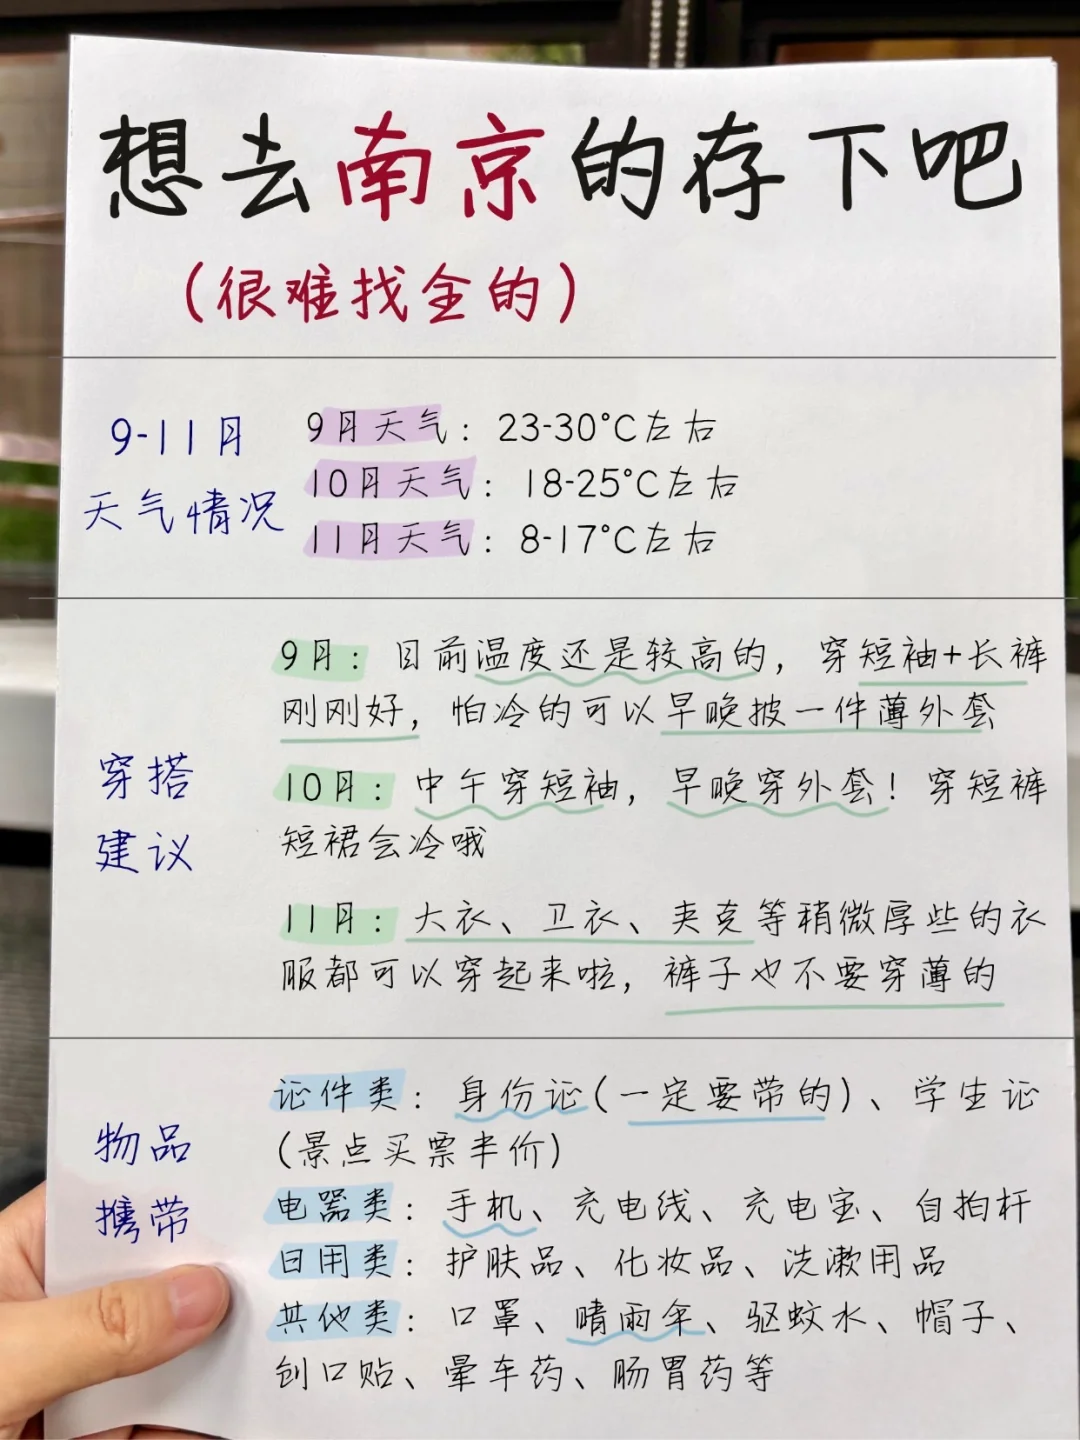 想去南京的存下吧
(很难找全的)
9-11月
天气情况
9月天气：23-30°C左右
10月天气：18-25°C左右
11月天气：8-17°C左右
穿搭
建议
9月：目前温度还是较高的，穿短袖+长裤
刚刚好，怕冷的可以早晚披一件薄外套
10月：中午穿短袖，早晚穿外套！穿短裤
短裙会冷哦
11月：大衣、卫衣、夹克等稍微厚些的衣
服都可以穿起来啦，裤子也不要穿薄的
物品
携带
证件类：身份证(一定要带的)、学生证
(景点买票半价)
电器类：手机、充电线、充电宝、自拍杆
日用类：护肤品、化妆品、洗漱用品
其他类：口罩、晴雨伞、驱蚊水、帽子、
创口贴、晕车药、肠胃药等